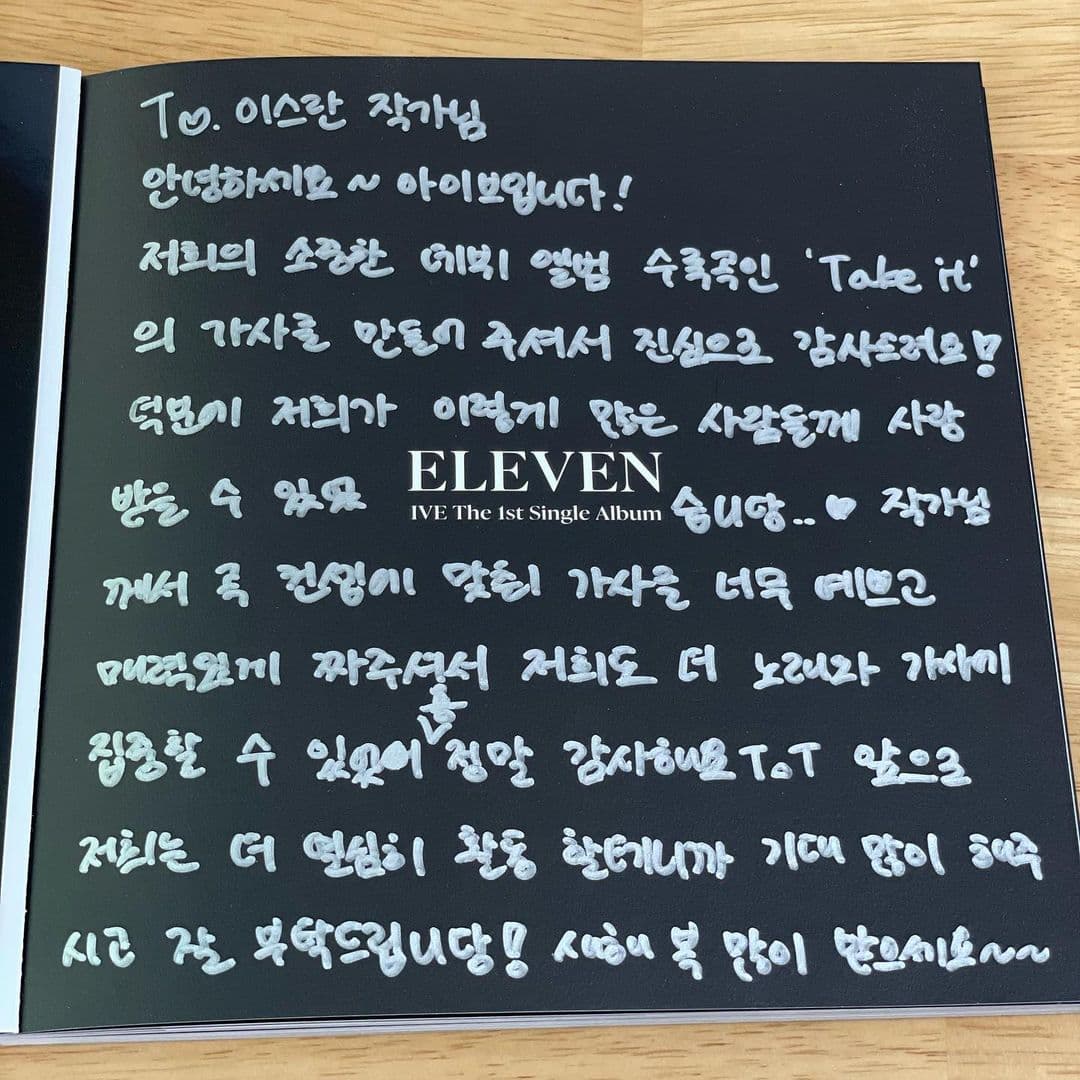 To. 이스란 작가님
안녕하세요~ 아이브입니다!
저희의 소중한 데뷔 앨범 수록곡인 'Take it'
의 가사를 만들어 주셔서 진심으로 감사드려요!
덕분에 저희가 이렇게 많은 사람들께 사랑
ELEVEN
받을 수 있었 습니당..♥ 작가님
IVE The 1st Single Album
께서 곡 컨셉에 맞춰 가사를 너무 예쁘고
매력있게 짜주셔서 저희도 더 노래와 가사에
집중할 수 있었어용 정말 감사해요ToT 앞으로
저희는 더 열심히 활동 할테니까 기대 많이 해주
시고 잘 부탁드립니당! 새해 복 많이 받으세요~~